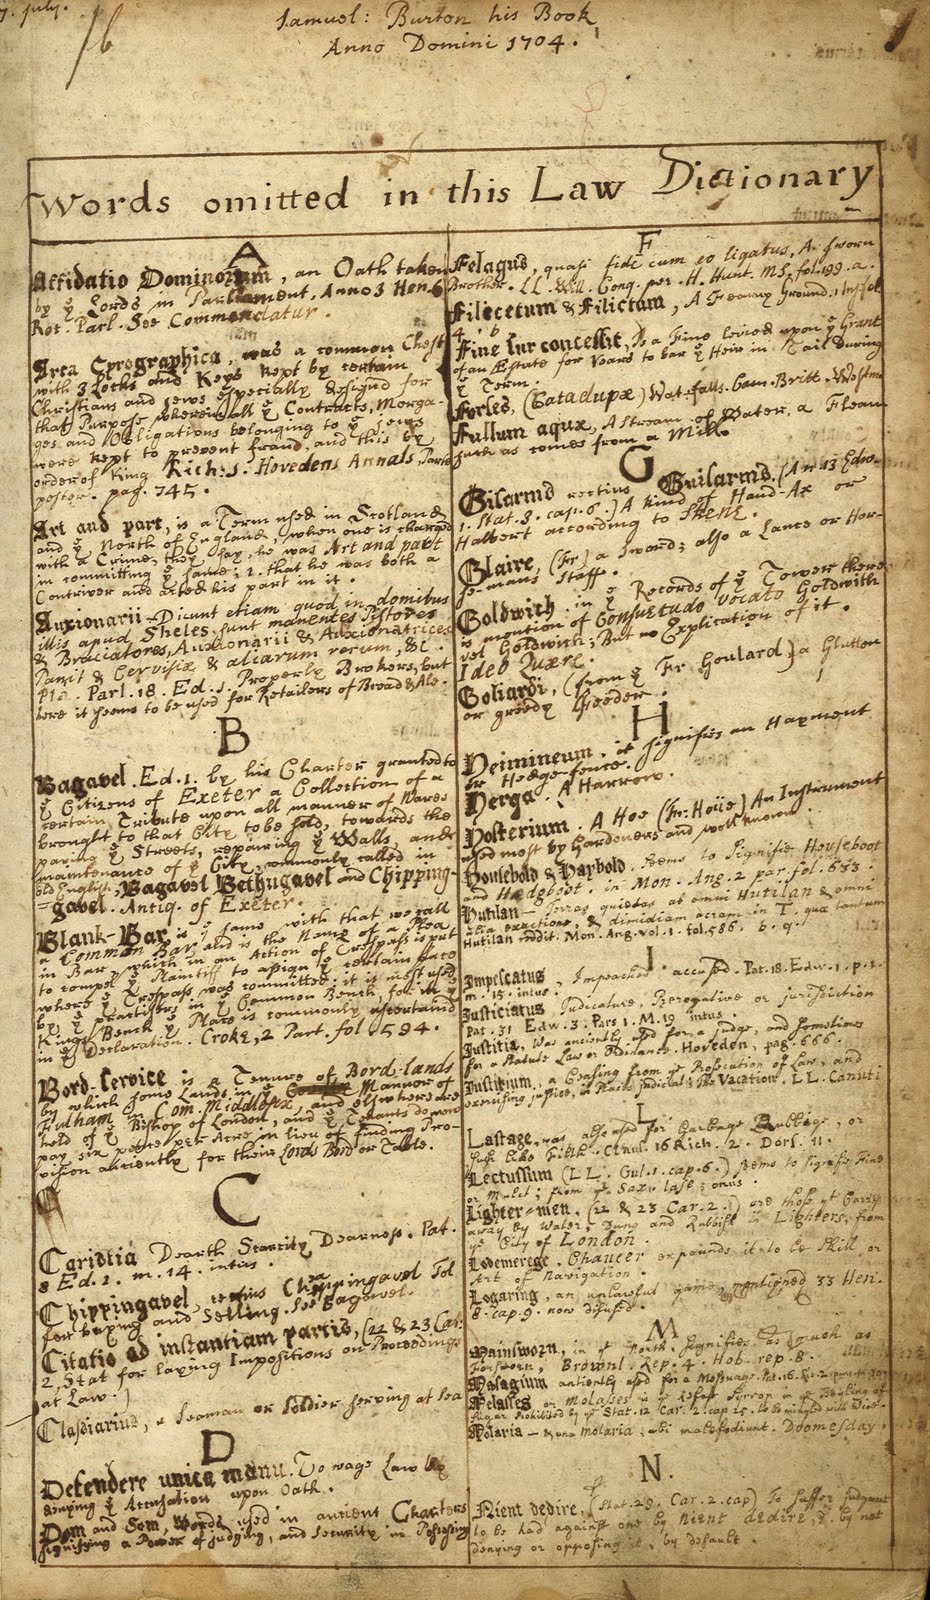 7. july.
Samuel: Burton his Book
Anno Domini 1704.
Words omitted in this Law Dictionary
A
Affidatio Dominorum, an Oath taken
by ye Lords in Parliament, Anno 3 Hen. 6
Rot. Parl. See Commendatur.
Arca Cyrographica, was a common Chest
with 3 Locks and Keys kept by certain
Christians and Jews especially design'd for
that Purpose wherein all ye Contracts, Morga-
ges and Obligations belonging to ye Jews
were kept to prevent fraud, and this by
order of King Rich: 1: Hovedens Annals, Parte
poster. pag. 745.
Art and part, is a Term used in Scotland
and ye North of England, when one is charged
with a Crime, they say, he was Art and part
in committing ye same; i. that he was both a
Contriver and acted his part in it.
Auxionarii - Dicunt etiam quod in domibus
illis apud Sheles sunt manentes Pistores
& Braciatores, Auxionarii & Auxionatrices
Panis & Cervisiæ & aliarum rerum, &c.
Pla. Parl. 18. Ed. 1. Properly Brokers, but
here it seems to be used for Retailers of Bread & Ale.
B
Bagavel. Ed. 1. by his Charter granted to
ye Citizens of Exeter a Collection of a
certain Tribute upon all manner of Wares
brought to that City to be sold, towards the
paving ye Streets, repairing ye Walls, and
maintenance of ye City, commonly called in
old English, Bagavel Bethugavel and Chipping-
=gavel. Antiq. of Exeter.
Blank-Bar is ye same with that we call
a Common Bar and is the Name of a Plea
in Bar, which in an Action of Trespass is put
to compel ye Plaintiff to assign ye certain place
where ye Trespass was committed: it is most used
by ye practisers in ye Common Bench, for in ye
Kings Bench ye Place is commonly ascertained
in ye Declaration. Croke, 2 Part. fol 594.
Bord-Service is a Tenure of Bord-lands
by which some Lands in ye Mannor of
Fulham in Com. Middlesex, and elsewhere are
held of ye Bishop of London, and ye Tenants do now
pay six pence per Acre in lieu of finding Pro-
vision anciently for their Lords Bord or Table.
C
Caristia Dearth Scarcity Dearness. Pat.
8 Ed. 1. m. 14. intus.
Chippingavel, rectius Cheapingavel Tol
for buying and Selling. See Bagavel.
Citatio ad instantiam partis, (22 & 23 Car.
2. Stat for laying Impositions on Proceedings
at Law.)
Classiarius, a Seaman or Soldier serving at Sea
D
Defendere unica manu. To wage Law by
denying ye Accusation upon Oath.
Dom and Som, Words used in ancient Charters
signifying a Power of judging, and security in Possessing
F
Felagus, quasi fide cum eo ligatus, A Sworn
Brother. LL. Will. Conq. per. H. Hunt. MS. fol. 199. a.
Filicetum & Filictum, A Fearny Ground. 1 Inst. fol.
4. b
Fine sur concessit, Is a Fine levied upon ye Grant
of an Estate for Years to bar ye Heir in Tail during
ye Term.
Forses, (Catadupæ) Wat-falls. Cam. Britt. Westm
Fullum aquæ, A Stream of Water, a Fleam
such as comes from a Mill.
G
Gilarmd rectius Guilarmd. (An 13 Edw-
1. Stat. 3. cap. 6.) A kind of Hand-Ax or
Halbert according to Skene.
Glaive, (Fr) a Sword; also a Lance or Hor-
se-mans Staff.
Goldwich: in ye Records of ye Tower there
is mention of Consuetudo vocato Goldwith
vel Goldwich; But no Explication of it.
Ideo Quære.
Goliardi, (from ye Fr Goulard) a Glutton
or greedy Feeder.
H
Heimineum. it signifies an Hayment
or Hedge-fence.
Herga. A Harrow.
Hosterium. A Hoe (Fr. Hoüe) An Instrument
used most by Gardeners and well known
Housebold & Haybold. Seems to signifie Houseboot
and Hedgboot. in Mon. Ang. 2 par. fol. 633.
Hutilan - Terras quietas ab omni Hutilan & omni
alia exactione, & dimidiam acram in T. quæ tantum
Hutilan reddit. Mon. Ang. vol. 1. fol. 586. b. q.
I
Impescatus, Impeached accused. Pat. 18. Edw. 1. p. 2.
m. 15. intus.
Justiciatus Judicature, Prerogative or jurisdiction
Pat. 31 Edw. 3. Pars 1. M. 19 intus.
Justitia, Was anciently used for a judge, and somtimes
for a Statute Law or Ordinance. Hoveden, pag. 666.
Justitium, a Ceasing from ye Prosecution of Law, and
exercising justice, in Places judicial; The Vacation. LL. Canuti
L
Lastage, was also used for Garbage Rubbige, or
such like Filth. Claus. 16 Rich. 2. Dors. 11.
Lectussium (LL. Gul. 1. cap. 6.) seems to signifie Fine
or Mulct; from ye Sax. lase; onus.
Lighter-men. (22 & 23 Car. 2.) are those yt Carry
away by Water, Dung and Rubbish in Lighters, from
ye City of London.
Lodemerege. Chaucer expounds it to be Skill or
Art of Navigation.
Logaring, an unlawful game, mentioned 33 Hen.
8. cap. 9. now disused.
M
Mainsworn, in ye North signifies as much as
Forsworn, Brownl. Rep. 4. Hob. rep. 8.
Mesagium antiently used for a Messuage.
Melasses or Molasses is ye Refuse Sirrop in ye Boyling of
Sugar Prohibited by ye Stat. 12 Car. 2. cap 25. to be mingled with Wine.
Molaria - & una molaria, ubi molæ fodiunt. Doomesday.
N.
Nient dedire, (Stat. 29. Car. 2. cap) To suffer judgment
to be had against one by Nient dedire, i. by not
denying or opposing it, by default.